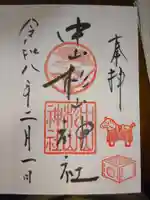 奉拝
中山杉山神社
令和八年二月一日